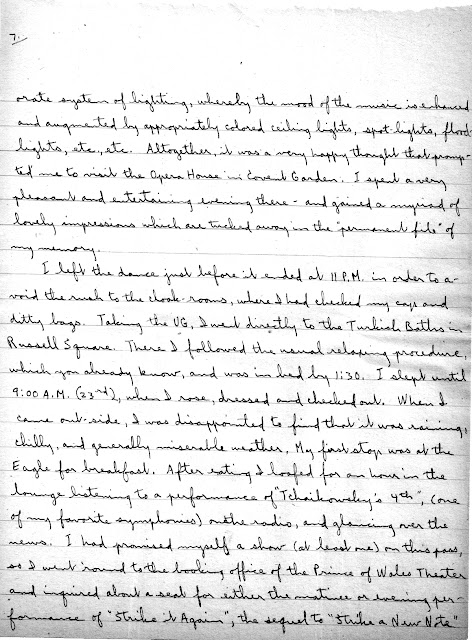 7.
orate system of lighting, whereby the mood of the music is enhanced
and augmented by appropriately colored ceiling lights, spot-lights, flood-
lights, etc., etc. Altogether, it was a very happy thought that promp-
ted me to visit the Opera House in Covent Garden. I spent a very
pleasant and entertaining evening there - and gained a myriad of
lovely impressions which are tucked away in the "permanent file" of
my memory.
I left the dance just before it ended at 11 P.M. in order to a-
void the rush to the cloak-rooms, where I had checked my cap and
ditty bags. Taking the UG, I went directly to the Turkish Baths in
Russell Square. There I followed the usual relaxing procedure,
which you already know, and was in bed by 1:30. I slept until
9:00 A.M. (23rd), when I rose, dressed and checked out. When I
came out-side, I was disappointed to find that it was raining,
chilly, and generally miserable weather. My first stop was at the
Eagle for breakfast. After eating I loafed for an hour in the
lounge listening to a performance of "Tchaikowsky's 4th", (one
of my favorite symphonies) on the radio, and glancing over the
news. I had promised myself a show (at least one) on this pass,
so I went 'round to the booking office of the Prince of Wales Theater
and inquired about a seat for either the matinee or evening per-
formance of "Strike it Again", the sequel to "Strike a New Note"